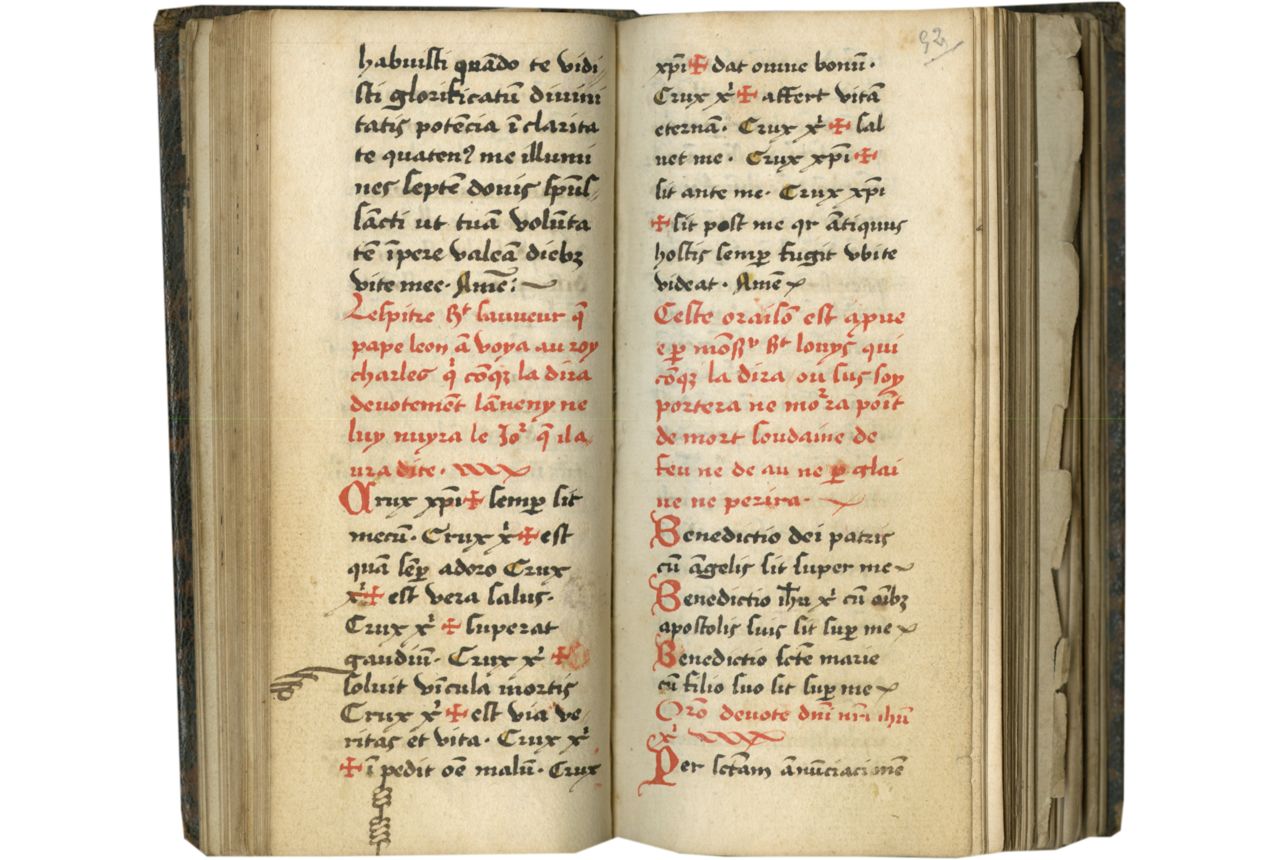 habuisti quādo te vidi
sti glorificatū divini
tatis potēcia ī clarita
te quatenꝰ me illumi
nes septē donis spūs
sācti ut tuā volūta
tē īpere valeā diebꝫ
vite mee. Amē:
Lespitre du sauveur q̄
pape leon ā voya au roy
charles q̄ cōqꝫ la dira
devotemēt lāneny ne
luy nuyra le Jor q̄ il a
ura dite.
Crux xp̄i ✠ semꝑ sit
mecū. Crux x̄ ✠ est
quā sēꝑ adoro Crux
x̄ ✠ est vera salus.
Crux x̄ ✠ superat
gaudiū. Crux x̄ ✠
soluit vīcula mortis
Crux x̄ ✠ est via ve
ritas et vita. Crux x̄
✠ ī pedit oē malū. Crux
92
xp̄i ✠ dat omne bonū.
Crux x̄ ✠ affert vitā
eternā. Crux x̄ ✠ sal
vet me. Crux xp̄i ✠
sit ante me. Crux xp̄i
✠ sit post me qr ātiquus
hostis semꝑ fugit vbi te
videat. Amē
Ceste oraisō est apvue
e ꝑ mōsr st louys qui
cōqꝫ la dira ou sus soy
portera ne morra poīt
de mort soudaine de
feu ne de au ne ꝑ glai
ve ne perira.
Benedictio dei patris
cū āgelis sit super me
Benedictio ih̄u x̄ cū oībꝫ
apostolis suis sit suꝑ me
Benedictio scte marie
cū filio suo sit suꝑ me
Orō devote dn̄i nr̄i ihū
x̄
Per sctam ānūciacionē